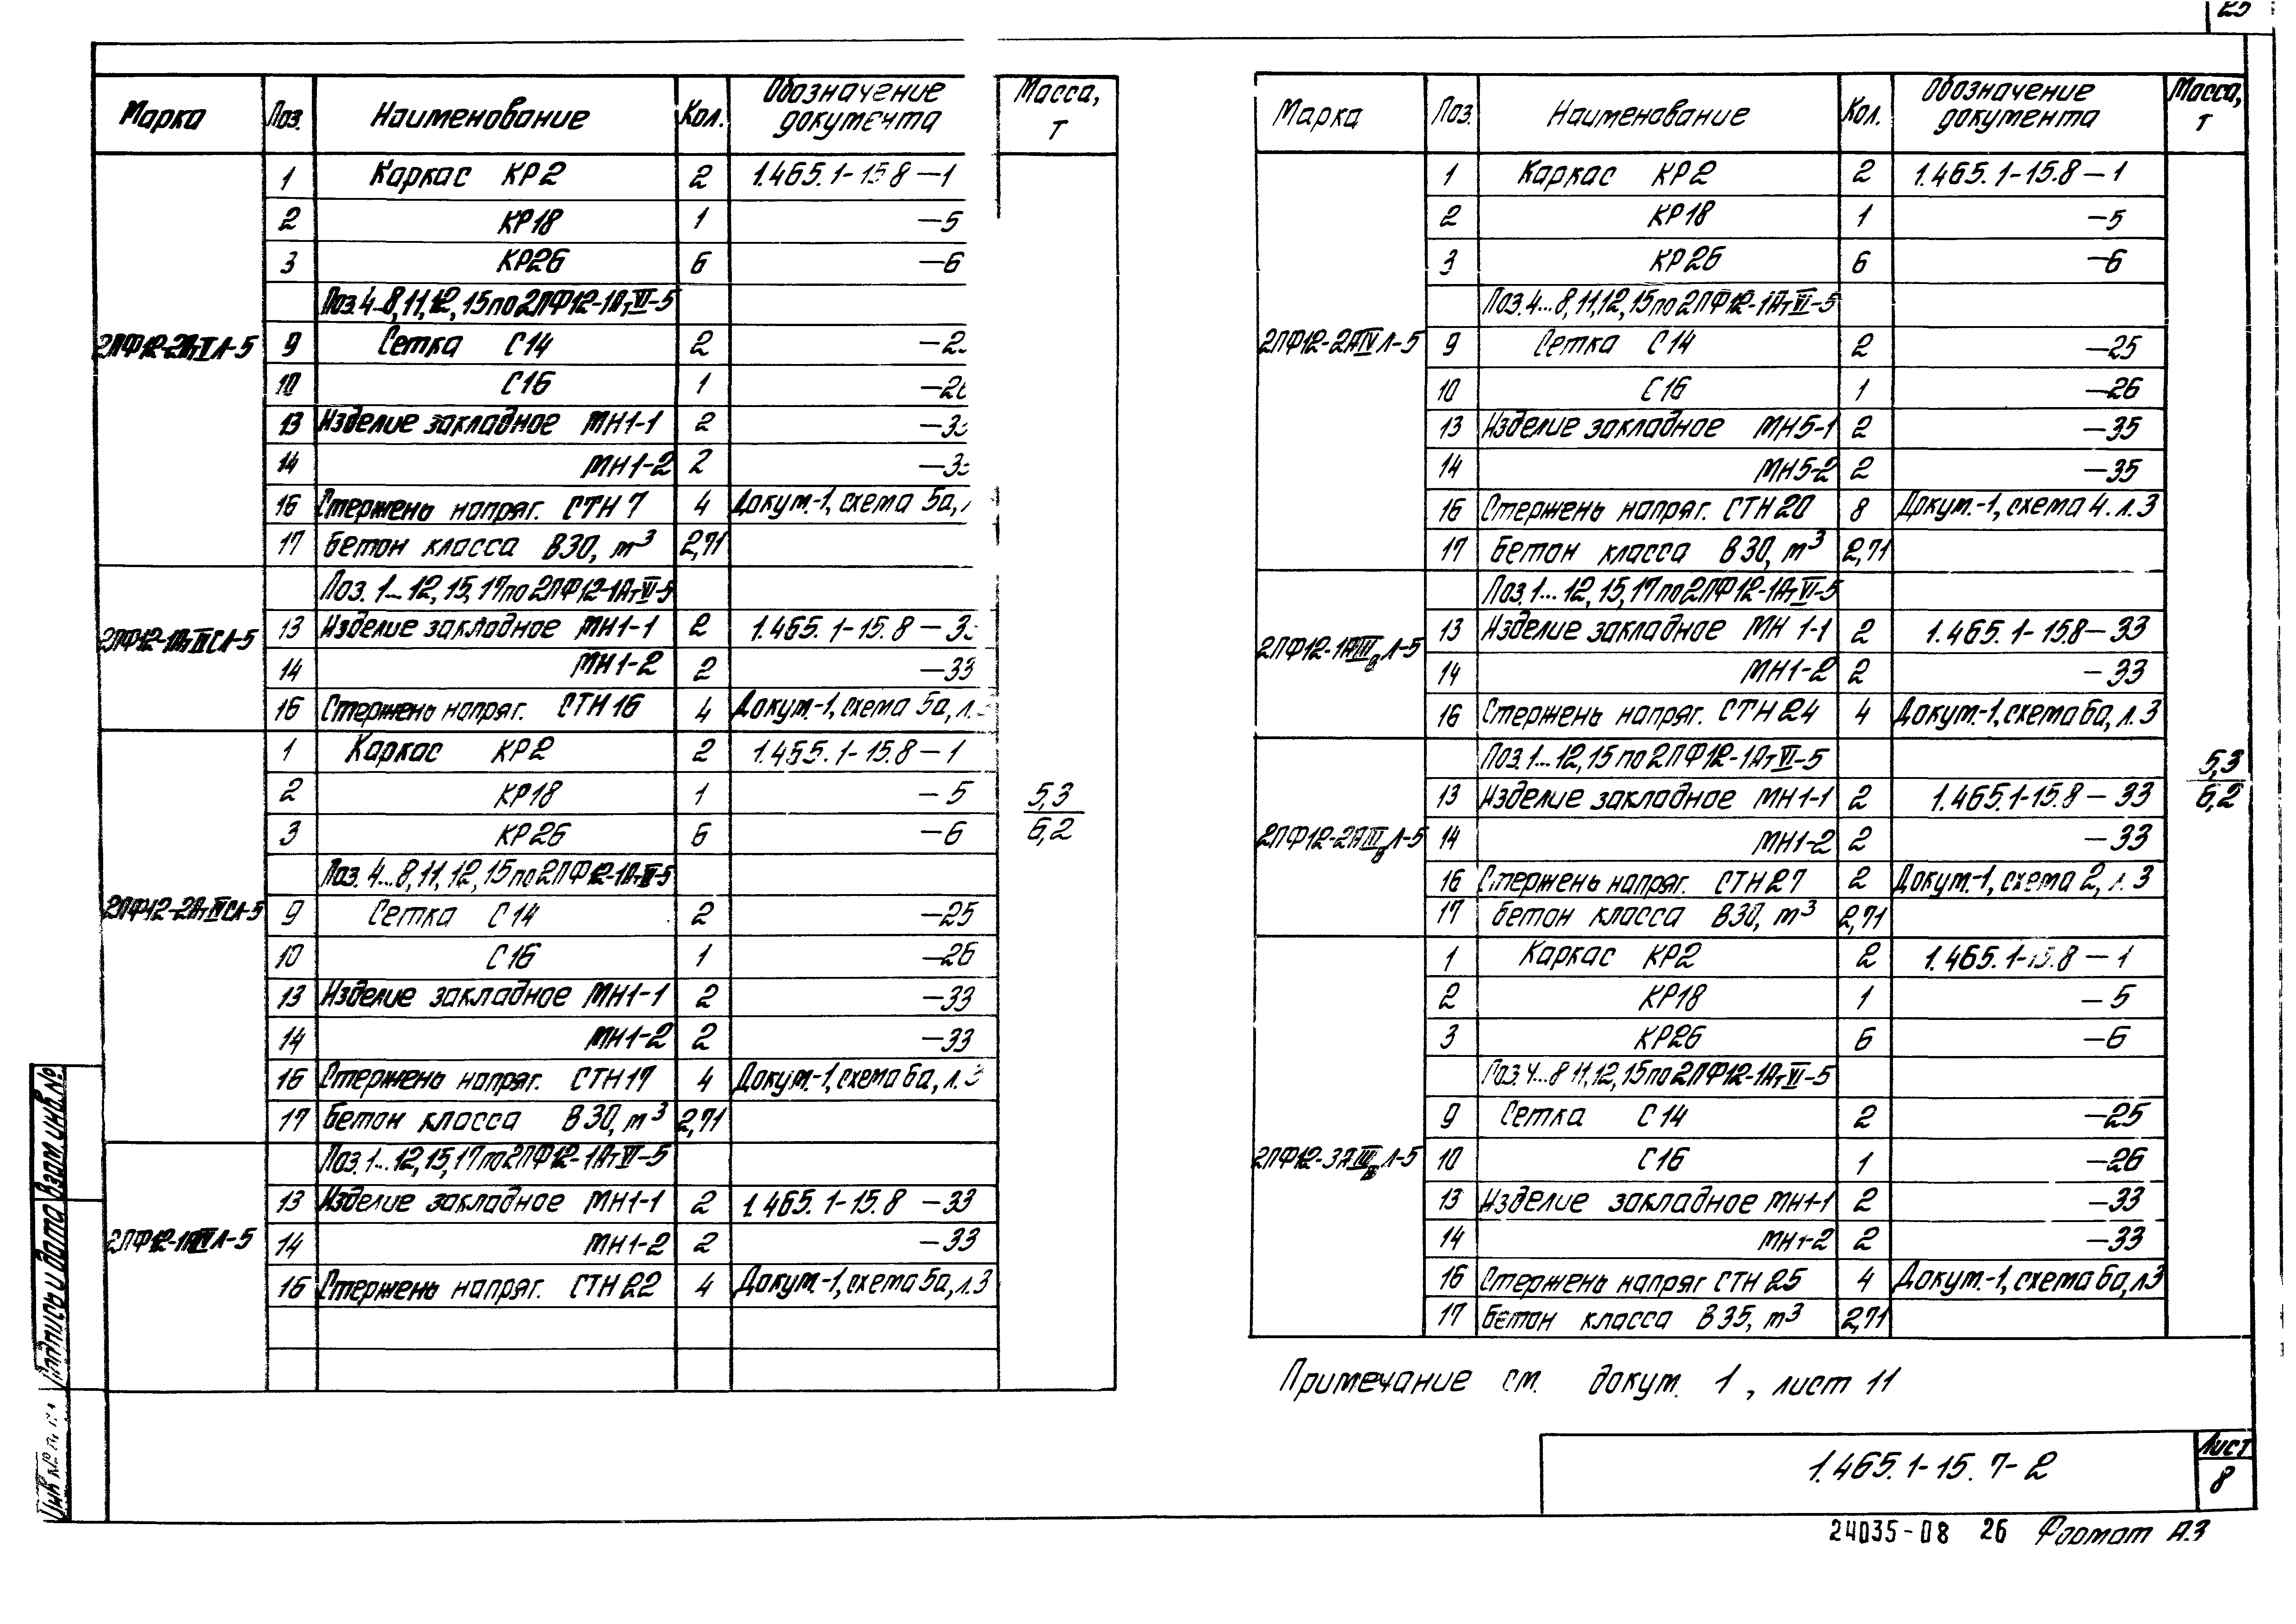 25
Марка Поз. Наименование Кол. Обозначение документа Масса, т
1 Каркас КР2 2 1.465.1-15.8 —1
2 КР18 1 —5
3 КР26 6 —6
Поз. 4...8, 11, 12, 15 по 2ПФ12-1АтVI-5
2ПФ12-2АтVЛ-5 9 Сетка С14 2
10 С16 1
13 Изделие закладное МН1-1 2
14 МН1-2 2
16 Стержень напряг. СТН 7 4 Докум.-1, схема 5а,
17 Бетон класса В30, м³ 2,71
Поз. 1... 12, 15, 17 по 2ПФ12-1АтVI-5
13 Изделие закладное МН1-1 2 1.465.1-15.8 —
2ПФ12-1АтIVСЛ-5 14 МН1-2 2 —33
16 Стержень напряг. СТН 16 4 Докум.-1, схема 5а, л.
1 Каркас КР2 2 1.465.1-15.8 — 1
2 КР18 1 — 5
3 КР26 6 — 6
5,3
6,2
Поз. 4...8, 11, 12, 15 по 2ПФ12-1АтVI-5
2ПФ12-2АтIVСЛ-5 9 Сетка С14 2 —25
10 С16 1 —26
13 Изделие закладное МН1-1 2 —33
14 МН1-2 2 —33
16 Стержень напряг. СТН 17 4 Докум.-1, схема 6а, л. 3
17 Бетон класса В30, м³ 2,71
Поз. 1... 12, 15, 17 по 2ПФ12-1АтVI-5
13 Изделие закладное МН1-1 2 1.465.1-15.8 —33
2ПФ12-1АIVЛ-5 14 МН1-2 2 —33
16 Стержень напряг. СТН 22 4 Докум.-1, схема 5а, л.3
Марка Поз. Наименование Кол. Обозначение документа Масса, т
1 Каркас КР2 2 1.465.1-15.8 — 1
2 КР18 1 —5
3 КР26 6 —6
Поз. 4...8, 11, 12, 15 по 2ПФ12-1АтVI-5
2ПФ12-2АIVЛ-5 9 Сетка С14 2 —25
10 С16 1 —26
13 Изделие закладное МН5-1 2 —35
14 МН5-2 2 —35
16 Стержень напряг. СТН 20 8 Докум.-1, схема 4. л.3
17 Бетон класса В30, м³ 2,71
Поз. 1... 12, 15, 17 по 2ПФ12-1АтVI-5
13 Изделие закладное МН 1-1 2 1.465.1-15.8— 33
2ПФ12-1АIIIвЛ-5 14 МН1-2 2 — 33
16 Стержень напряг. СТН 24 4 Докум.-1, схема 6а, л. 3
Поз. 1... 12, 15 по 2ПФ12-1АтVI-5
5,3
6,2
13 Изделие закладное МН1-1 2 1.465.1-15.8 — 33
2ПФ12-2АIIIвЛ-5 14 МН1-2 2 — 33
16 Стержень напряг. СТН 27 2 Докум.-1, схема 2, л. 3
17 Бетон класса В30, м³ 2,71
1 Каркас КР2 2 1.465.1-15.8 — 1
2 КР18 1 — 5
3 КР26 6 —6
Поз. 4...8 11, 12, 15 по 2ПФ12-1АтVI-5
9 Сетка С14 2 —25
2ПФ12-3АIIIвЛ-5 10 С16 1 —26
13 Изделие закладное МН1-1 2 —33
14 МН1-2 2 —33
16 Стержень напряг СТН 25 4 Докум.-1, схема 6а, л3
17 Бетон класса В35, м³ 2,71
Примечание см. докум. 1, лист 11
1.465.1-15. 7-2
Лист
8
24035-08 26 Формат А3
Взам. инв. №
Подпись и дата
Инв № п